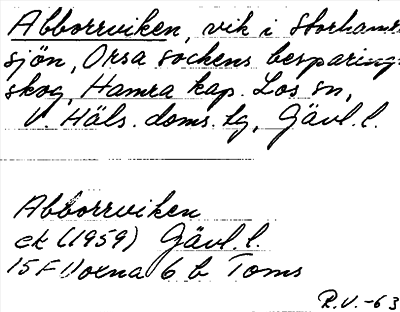 Abborrviken, vik i Storhamra
sjön, Orsa sockens besparings
skog, Hamra kap. Los sn,
V. Häls. doms. lg, Gävl. l.
Abborrviken
ek (1959) Gävl. l.
15F 6 b Toms
R.V.-63